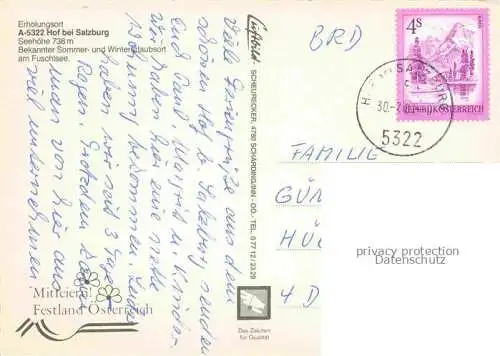 Erholungsort
A-5322 Hof bei Salzburg
Seehöhe 738 m
Bekannter Sommer- und Winterurlaubsort
am Fuschlsee.
Viele Feriengrüße aus dem
schönen Hof b. Salzburg senden
Euch Margrit u. Kinder.
Wir haben hier eine nette
Wohnung bekommen. Leider
haben wir seit 3 Tagen
Regen. Trotzdem kann
man von hier aus
viel unternehmen
Mitfeiern!
Festland Österreich
Luftbild:
SCHEURECKER, 4780 SCHÄRDING/INN - OÖ. - TEL. 0 77 12 / 23 29
Das Zeichen
für Qualität
BRD
4S
REPUBLIK ÖSTERREICH
5322
FAMILIE
GÜN
HÜ
4 D
privacy protection
Datenschutz